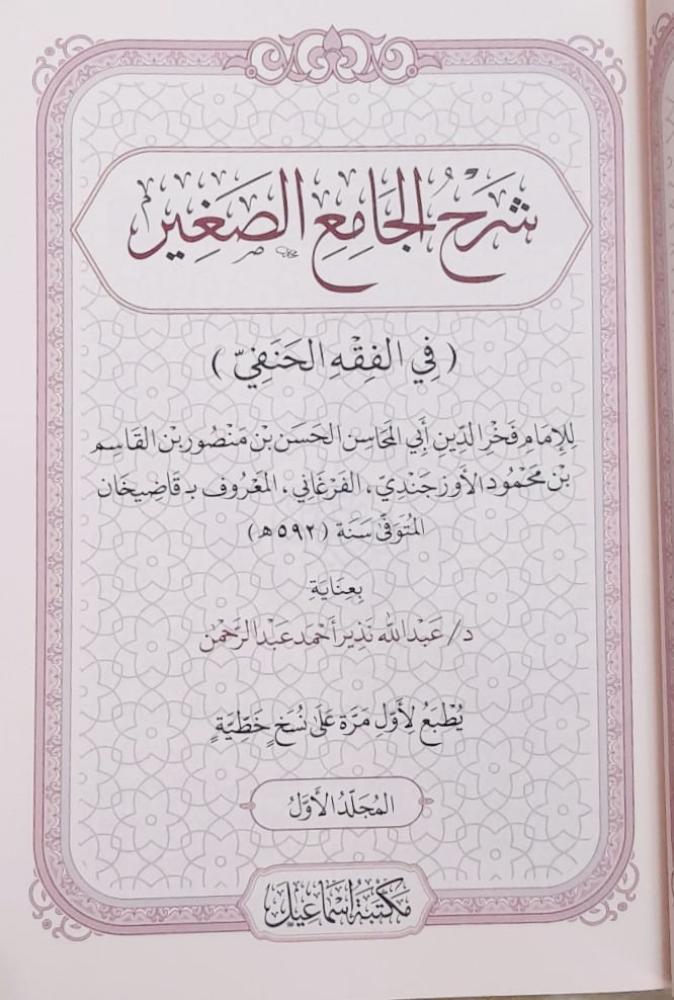 شَرْحُ الجَامِعِ الصَّغِيرِ
( فِي الفِقْهِ الحَنَفِيّ )
لِلإِمَامِ فَخْرِ الدِّينِ أَبِي المَحَاسِن الحَسَن بْن مَنْصُور بْن القَاسِم
بْن مَحْمُود الأوزجَنْدِيّ، الفَرْغَاني، المَعْرُوف بـ قَاضِيخَان
المُتَوَفَّى سَنَة (٥٩٢هـ)
بِعِنَايَةِ
د/ عَبْدالله نَذِير أَحْمَد عَبْدالرَّحْمٰن
يُطْبَعُ لِأَوَّلِ مَرَّة عَلَى نُسَخٍ خَطِّيَّةٍ
المُجَلَّدُ الأَوَّلُ
مَكْتَبَةُ اسْمَاعِيل